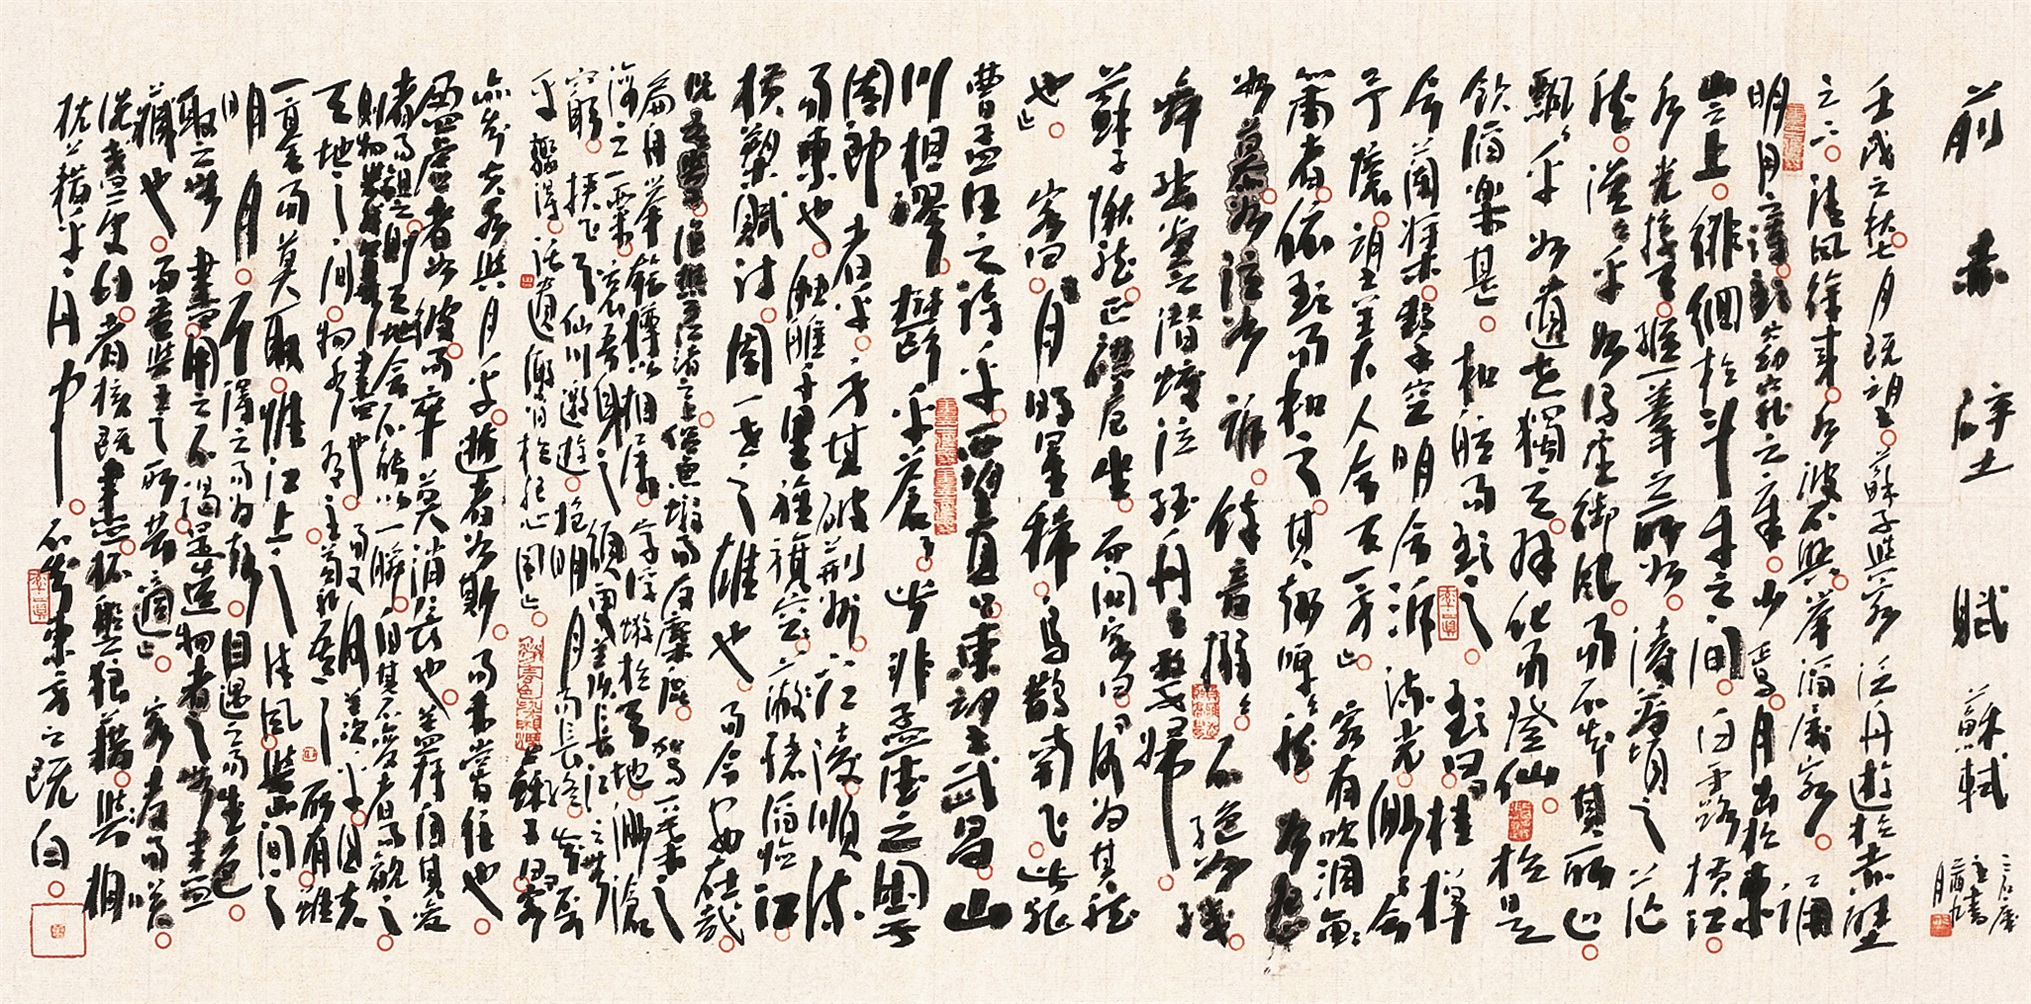 前赤壁賦 蘇軾
壬戌之秋七月既望蘇子與客泛舟遊於赤壁
之下清風徐來水波不興舉酒屬客誦
明月之詩歌窈窕之章少焉月出於東
山之上徘徊於斗牛之間白露橫江
水光接天縱一葦之所如凌萬頃之茫
然浩浩乎如馮虛御風而不知其所止
飄飄乎如遺世獨立羽化而登仙於是
飲酒樂甚扣舷而歌之歌曰桂棹
兮蘭槳擊空明兮泝流光渺渺兮
予懷望美人兮天一方客有吹洞簫
簫者倚歌而和之其聲嗚嗚然如怨
如慕如泣如訴餘音嫋嫋不絕如縷
舞幽壑之潛蛟泣孤舟之嫠婦
蘇子愀然正襟危坐而問客曰何為其然
也客曰月明星稀烏鵲南飛此非
曹孟德之詩乎西望夏口東望武昌山
川相繆鬱乎蒼蒼此非孟德之困於
周郎者乎方其破荊州下江陵順流
而東也舳艫千里旌旗蔽空釃酒臨江
橫槊賦詩固一世之雄也而今安在哉
況吾與子漁樵於江渚之上侶魚蝦而友麋鹿駕一葉之
扁舟舉匏樽以相屬寄蜉蝣於天地渺滄
海之一粟哀吾生之須臾羨長江之無
窮挾飛仙以遨遊抱明月而長終知不可
乎驟得託遺響於悲風蘇子曰客
亦知夫水與月乎逝者如斯而未嘗往也
盈虛者如彼而卒莫消長也蓋將自其變
者而觀之則天地曾不能以一瞬自其不變者而觀之
則物與我皆無盡也而又何羨乎且夫
天地之間物各有主苟非吾之所有雖
一毫而莫取惟江上之清風與山間之
明月耳得之而為聲目遇之而成色
取之無盡用之不竭是造物者之無盡
藏也而吾與子之所共適客喜而笑
洗盞更酌肴核既盡杯盤狼藉相與
枕藉乎舟中不知東方之既白